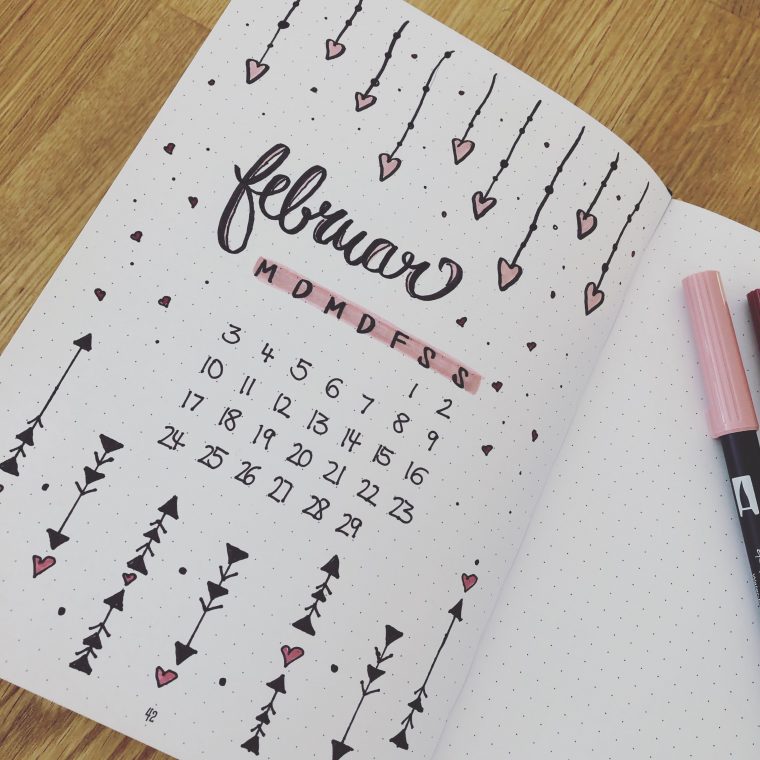 februar
M D M D F S S
1 2
3 4 5 6 7 8 9
10 11 12 13 14 15 16
17 18 19 20 21 22 23
24 25 26 27 28 29
42